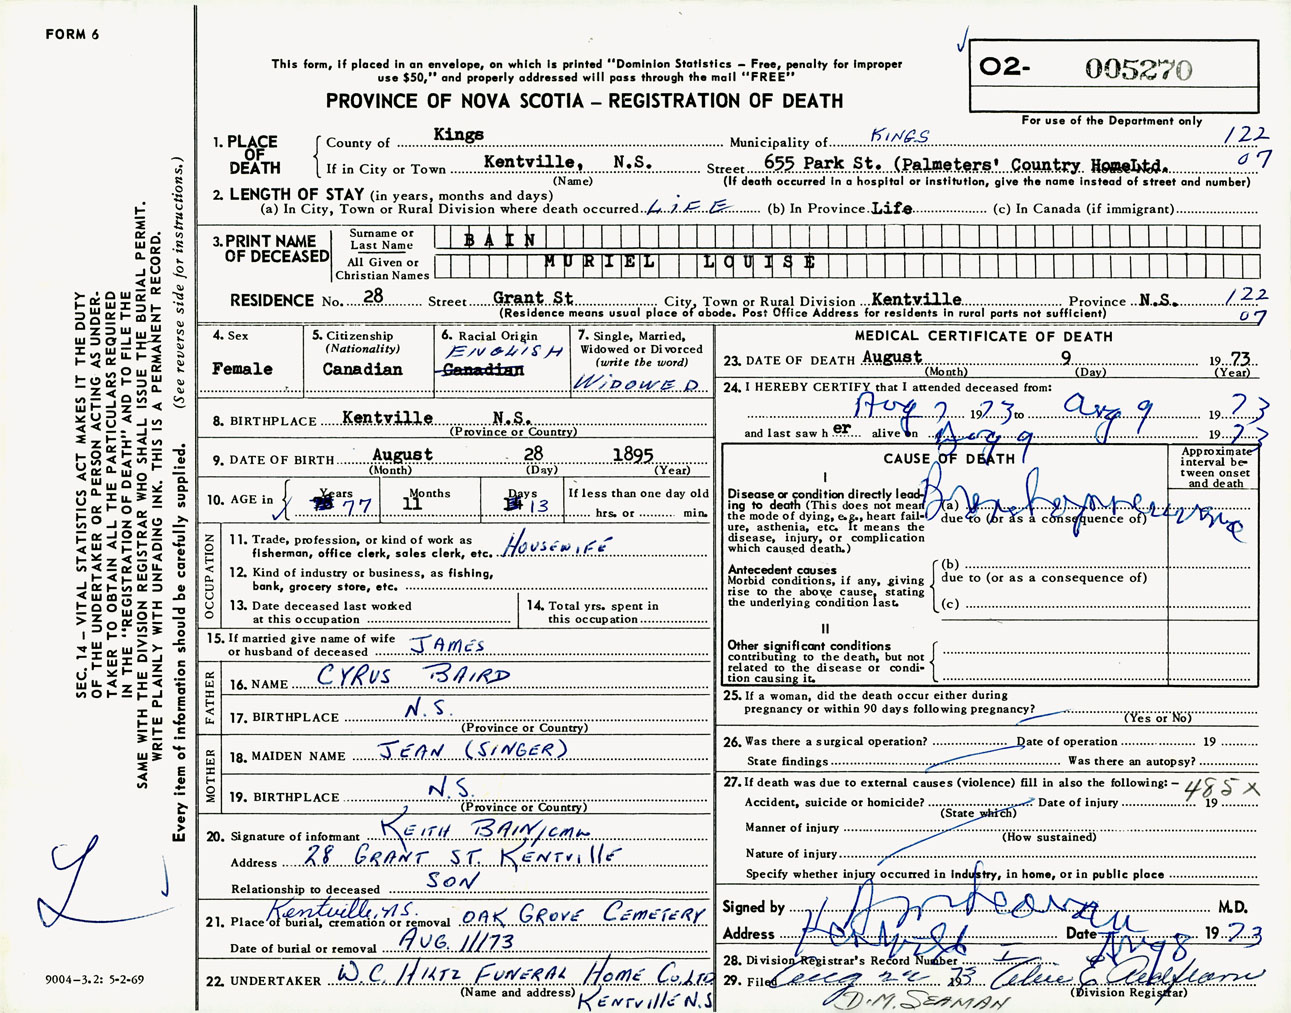 FORM 6
SEC. 14 – VITAL STATISTICS ACT MAKES IT THE DUTY
OF THE UNDERTAKER OR PERSON ACTING AS UNDER-
TAKER TO OBTAIN ALL THE PARTICULARS REQUIRED
IN THE "REGISTRATION OF DEATH" AND TO FILE THE
SAME WITH THE DIVISION REGISTRAR WHO SHALL ISSUE THE BURIAL PERMIT.
WRITE PLAINLY WITH UNFADING INK. THIS IS A PERMANENT RECORD.
Every item of information should be carefully supplied. (See reverse side for instructions.)
9004–3.2: 5-2-69
This form, if placed in an envelope, on which is printed "Dominion Statistics – Free, penalty for improper
use $50," and properly addressed will pass through the mail "FREE"
PROVINCE OF NOVA SCOTIA – REGISTRATION OF DEATH
O2- 005270
For use of the Department only
1. PLACE OF DEATH
County of Kings Municipality of KINGS 122
If in City or Town Kentville, N.S. Street 655 Park St. (Palmeters' Country HomeLtd. 07
(Name) (If death occurred in a hospital or institution, give the name instead of street and number)
2. LENGTH OF STAY (in years, months and days)
(a) In City, Town or Rural Division where death occurred LIFE (b) In Province Life (c) In Canada (if immigrant)
3. PRINT NAME OF DECEASED
Surname or Last Name BAIN
All Given or Christian Names MURIEL LOUISE
RESIDENCE No. 28 Street Grant St City, Town or Rural Division Kentville Province N.S. 122
(Residence means usual place of abode. Post Office Address for residents in rural parts not sufficient) 07
4. Sex
Female
5. Citizenship
(Nationality)
Canadian
6. Racial Origin
ENGLISH
Canadian
7. Single, Married,
Widowed or Divorced
(write the word)
WIDOWED
8. BIRTHPLACE Kentville N.S.
(Province or Country)
9. DATE OF BIRTH August 28 1895
(Month) (Day) (Year)
10. AGE in Years 77 Months 11 Days 13 If less than one day old
hrs. or min.
OCCUPATION
11. Trade, profession, or kind of work as
fisherman, office clerk, sales clerk, etc. HOUSEWIFE
12. Kind of industry or business, as fishing,
bank, grocery store, etc.
13. Date deceased last worked
at this occupation
14. Total yrs. spent in
this occupation
15. If married give name of wife
or husband of deceased JAMES
FATHER
16. NAME CYRUS BAIRD
17. BIRTHPLACE N.S.
(Province or Country)
MOTHER
18. MAIDEN NAME JEAN (SINGER)
19. BIRTHPLACE N.S.
(Province or Country)
20. Signature of informant KEITH BAIN/cmw
Address 28 GRANT ST. KENTVILLE
Relationship to deceased SON
Kentville, N.S.
21. Place of burial, cremation or removal OAK GROVE CEMETERY
Date of burial or removal AUG. 11/73
22. UNDERTAKER W.C. HILTZ FUNERAL HOME CO. LTD
(Name and address) KENTVILLE N.S
MEDICAL CERTIFICATE OF DEATH
23. DATE OF DEATH August 9 1973
(Month) (Day) (Year)
24. I HEREBY CERTIFY that I attended deceased from:
Aug 7 1973 to Aug 9 1973
and last saw her alive on Aug 9 1973
CAUSE OF DEATH
Approximate
interval be-
tween onset
and death
I
Disease or condition directly lead-
ing to death (This does not mean
the mode of dying, e.g., heart fail-
ure, asthenia, etc. It means the
disease, injury, or complication
which caused death.)
(a) Bronchopneumonia
due to (or as a consequence of)
Antecedent causes
Morbid conditions, if any, giving
rise to the above cause, stating
the underlying condition last.
(b)
due to (or as a consequence of)
(c)
II
Other significant conditions
contributing to the death, but not
related to the disease or condi-
tion causing it.
25. If a woman, did the death occur either during
pregnancy or within 90 days following pregnancy?
(Yes or No)
26. Was there a surgical operation? Date of operation 19
State findings Was there an autopsy?
27. If death was due to external causes (violence) fill in also the following: – 485 X
Accident, suicide or homicide? Date of injury 19
(State which)
Manner of injury
(How sustained)
Nature of injury
Specify whether injury occurred in Industry, in home, or in public place
Signed by M.D.
Address Kentville Date Aug 8 1973
28. Division Registrar's Record Number
29. Filed Aug 22 1973
(Division Registrar)
D.M. SEAMAN